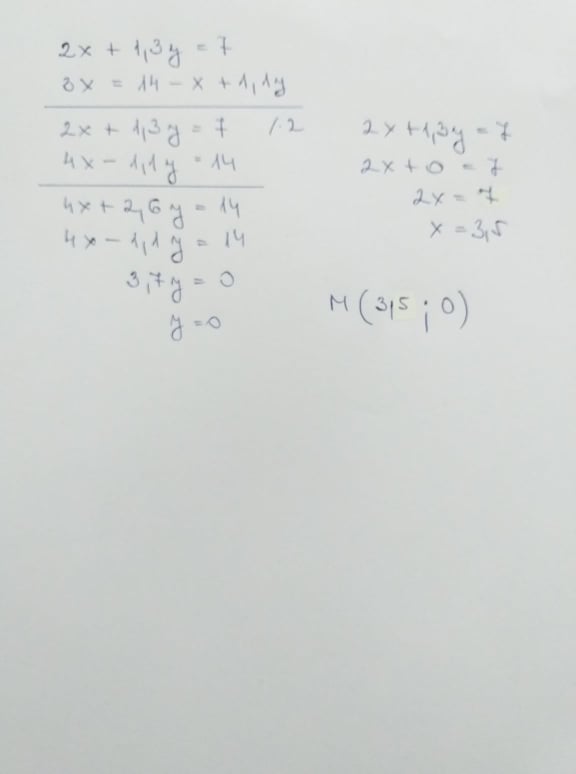 2x + 1,3y = 7
3x = 14 - x + 1,1y
2x + 1,3y = 7 /·2
4x - 1,1y = 14
4x + 2,6y = 14
4x - 1,1y = 14
3,7y = 0
y = 0
2x + 1,3y = 7
2x + 0 = 7
2x = 7
x = 3,5
M (3,5 ; 0)